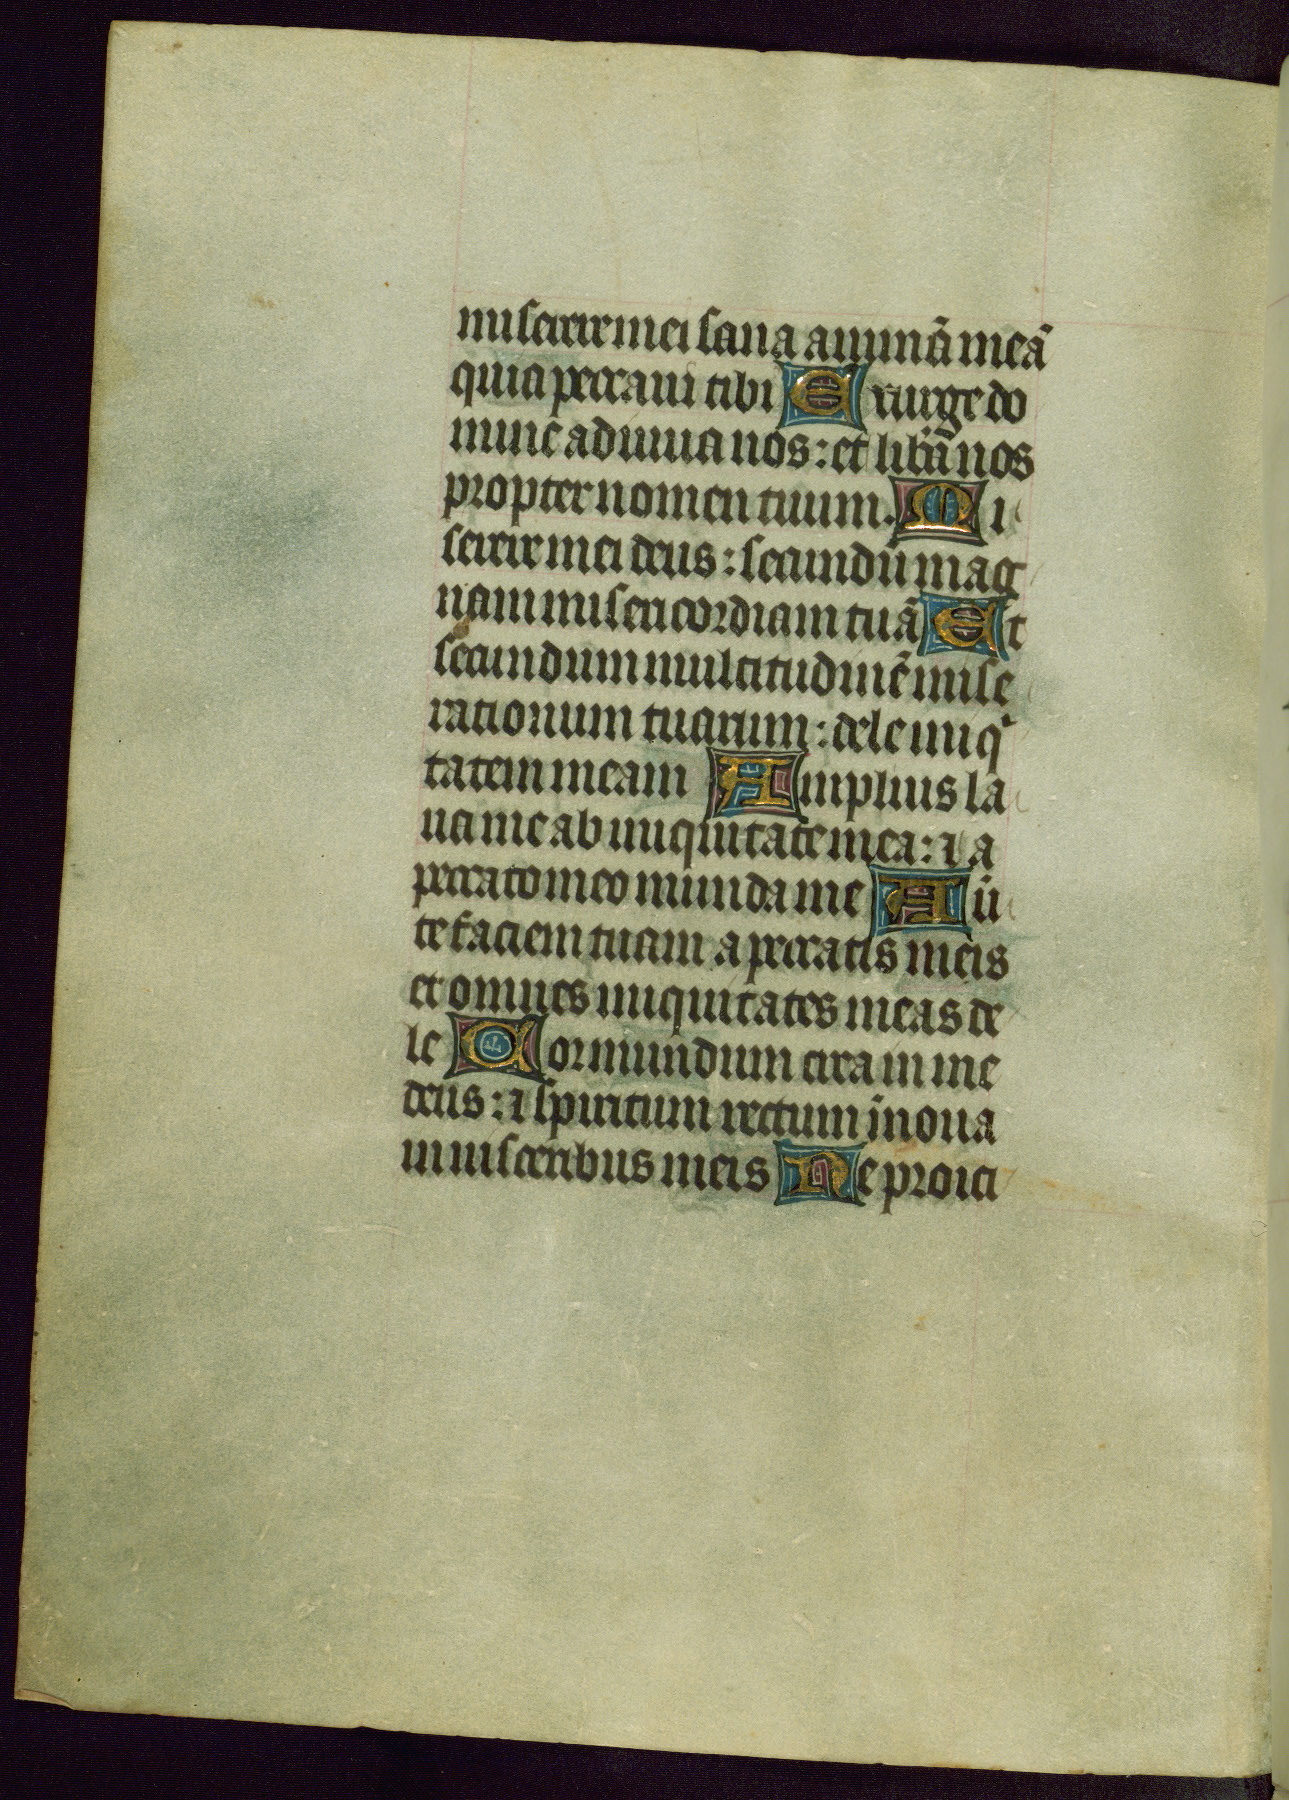 miserere mei sana animā meā
quia peccaui tibi Exurge do
mine adiuua nos: et libā nos
propter nomen tuum. Mi
serere mei deus: secundū mag
nam misericordiam tuā Et
secundum multitudinē mise
rationum tuarum: dele iniqⁱ
tatem meam Amplius la
ua me ab iniquitate mea: ⁊ a
peccato meo munda me Aū
te faciem tuam a peccatis meis
et omnes iniquitates meas de
le Cor mundum crea in me
deus: ⁊ spiritum rectum īnoua
in uisceribus meis Ne proici